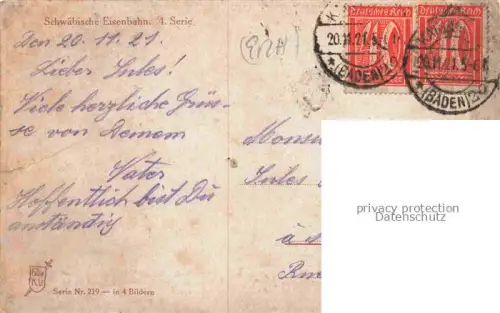 Schwäbische Eisenbahn. 4. Serie
Den 20.11.21.
Lieber Jules!
Viele herzliche Grüs-
se von Deinem
Vater
Hoffentlich bist Du
anständig
Serie Nr. 219 — in 4 Bildern
Deutsches Reich
Deutsches Reich
20.11.21.5
*(BADEN)2
20.11.21.5-6
(BADEN)2
Jules
à
privacy protection
Datenschutz